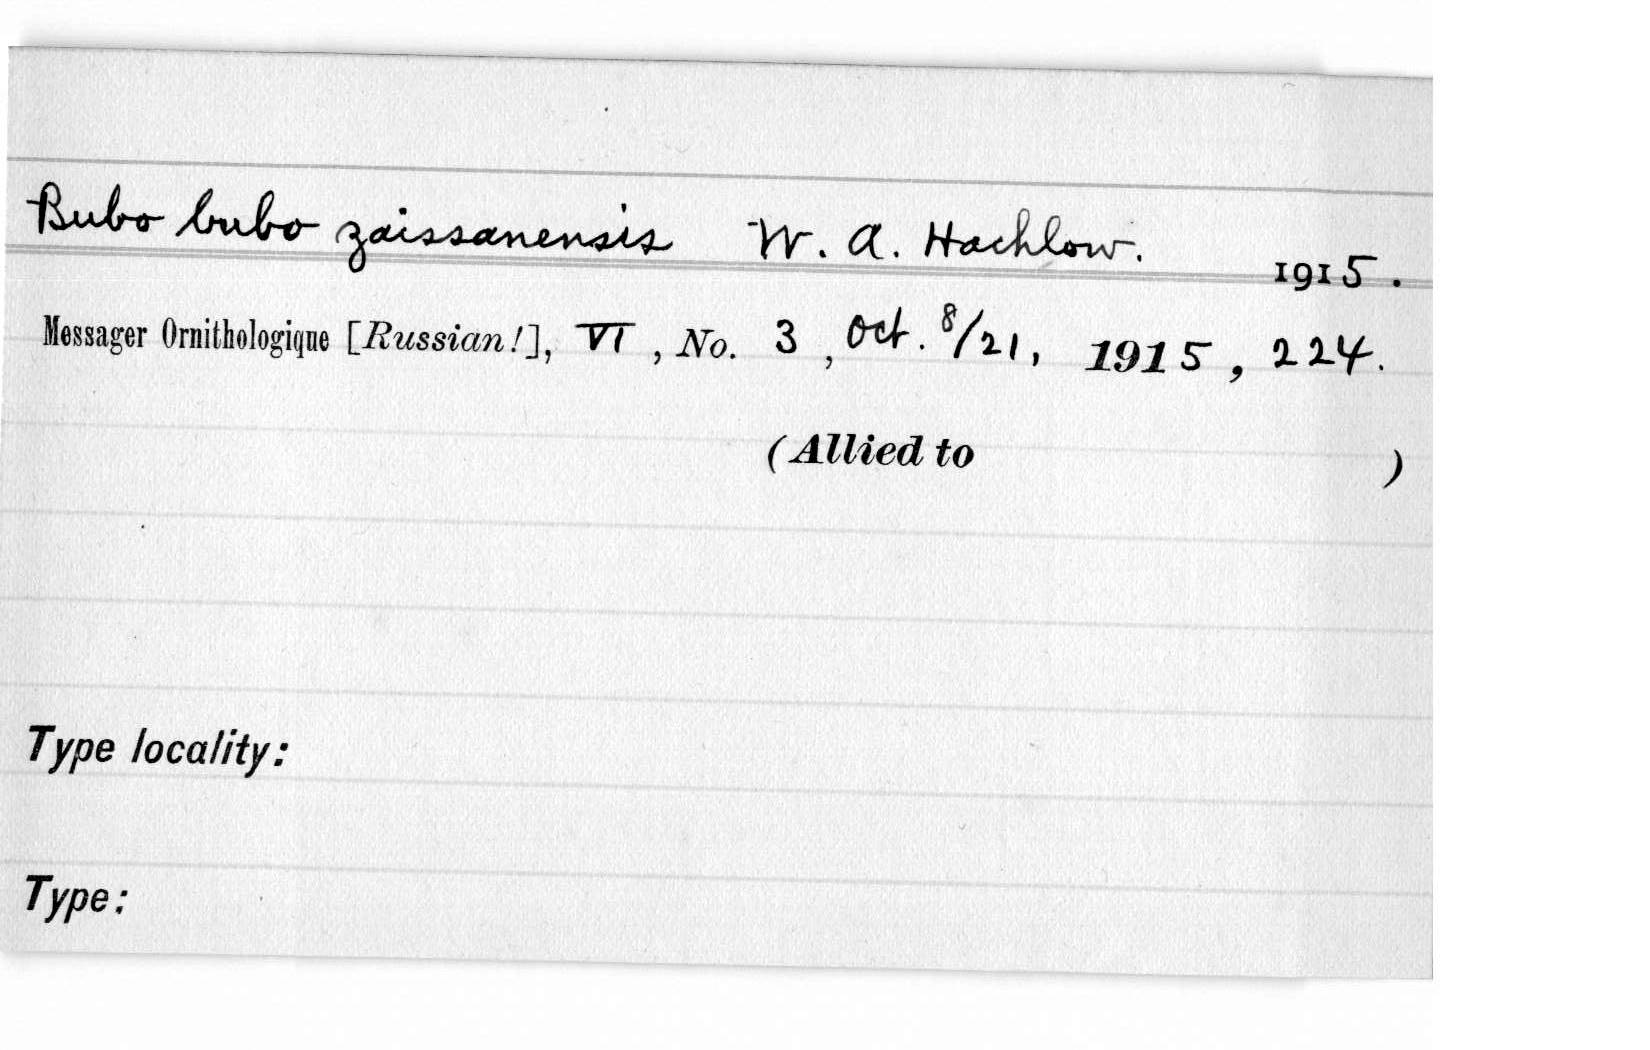 Bubo bubo zaissanensis W. A. Hachlow. 1915.
Messager Ornithologique [Russian!], VI, No. 3, Oct. 8/21, 1915, 224.
(Allied to )
Type locality:
Type: